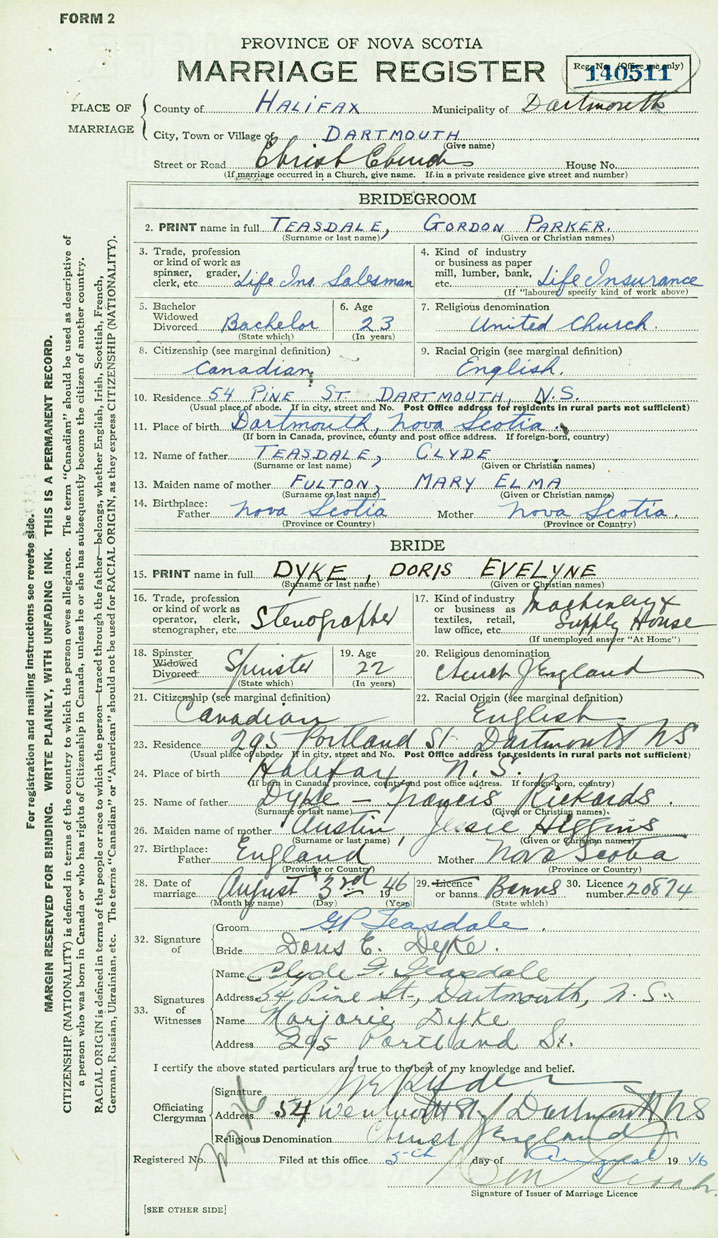 FORM 2
PROVINCE OF NOVA SCOTIA
MARRIAGE REGISTER
Reg. No. (Office use only)
140511
PLACE OF MARRIAGE
County of HALIFAX Municipality of Dartmouth
City, Town or Village of DARTMOUTH
(Give name)
Street or Road Christ Church House No.
(If marriage occurred in a Church, give name. If in a private residence give street and number)
BRIDEGROOM
2. PRINT name in full TEASDALE, GORDON PARKER.
(Surname or last name) (Given or Christian names)
3. Trade, profession or kind of work as spinner, grader, clerk, etc. Life Ins. Salesman
4. Kind of industry or business as paper mill, lumber, bank, etc. Life Insurance
(If "labourer" specify kind of work above)
5. Bachelor Widowed Divorced Bachelor
(State which)
6. Age 23
(In years)
7. Religious denomination United Church.
8. Citizenship (see marginal definition) Canadian
9. Racial Origin (see marginal definition) English.
10. Residence 54 PINE ST. DARTMOUTH, N.S.
(Usual place of abode. If in city, street and No. Post Office address for residents in rural parts not sufficient)
11. Place of birth Dartmouth, Nova Scotia.
(If born in Canada, province, county and post office address. If foreign-born, country)
12. Name of father TEASDALE, CLYDE
(Surname or last name) (Given or Christian names)
13. Maiden name of mother FULTON, MARY ELMA
(Surname or last name) (Given or Christian names)
14. Birthplace: Father Nova Scotia Mother Nova Scotia.
(Province or Country) (Province or Country)
BRIDE
15. PRINT name in full DYKE, DORIS EVELYNE
(Surname or last name) (Given or Christian names)
16. Trade, profession or kind of work as operator, clerk, stenographer, etc. Stenographer
17. Kind of industry or business as textiles, retail, law office, etc. Supply House
(If unemployed answer "At Home")
18. Spinster Widowed Divorced Spinster
(State which)
19. Age 22
(In years)
20. Religious denomination Church of England
21. Citizenship (see marginal definition) Canadian
22. Racial Origin (see marginal definition) English
23. Residence 295 Portland St Dartmouth NS
(Usual place of abode. If in city, street and No. Post Office address for residents in rural parts not sufficient)
24. Place of birth Halifax N.S.
(If born in Canada, province, county and post office address. If foreign-born, country)
25. Name of father Dyke — Francis Rickards.
(Surname or last name) (Given or Christian names)
26. Maiden name of mother Austin, Jessie Higgins
(Surname or last name) (Given or Christian names)
27. Birthplace: Father England Mother Nova Scotia
(Province or Country) (Province or Country)
28. Date of marriage August 3rd 1946
(Month by name) (Day) (Year)
29. Licence or banns Banns
(State which)
30. Licence number 20874
32. Signature of
Groom GP Teasdale.
Bride Doris E. Dyke.
33. Signatures of Witnesses
Name Clyde G. Teasdale
Address 54 Pine St., Dartmouth, N.S.
Name Marjorie Dyke
Address 295 Portland St.
I certify the above stated particulars are true to the best of my knowledge and belief.
Officiating Clergyman
Signature
Address 54 Wentworth St / Dartmouth NS
Religious Denomination Church of England
Registered No. Filed at this office 5th day of August 1946
Signature of Issuer of Marriage Licence
[SEE OTHER SIDE]
For registration and mailing instructions see reverse side.
MARGIN RESERVED FOR BINDING. WRITE PLAINLY, WITH UNFADING INK. THIS IS A PERMANENT RECORD.
CITIZENSHIP (NATIONALITY) is defined in terms of the country to which the person owes allegiance. The term "Canadian" should be used as descriptive of
a person who was born in Canada or who has rights of Citizenship in Canada, unless he or she has subsequently become the citizen of another country.
RACIAL ORIGIN is defined in terms of the people or race to which the person—traced through the father—belongs, whether English, Irish, Scottish, French,
German, Russian, Ukrainian, etc. The terms "Canadian" or "American" should not be used for RACIAL ORIGIN, as they express CITIZENSHIP (NATIONALITY).